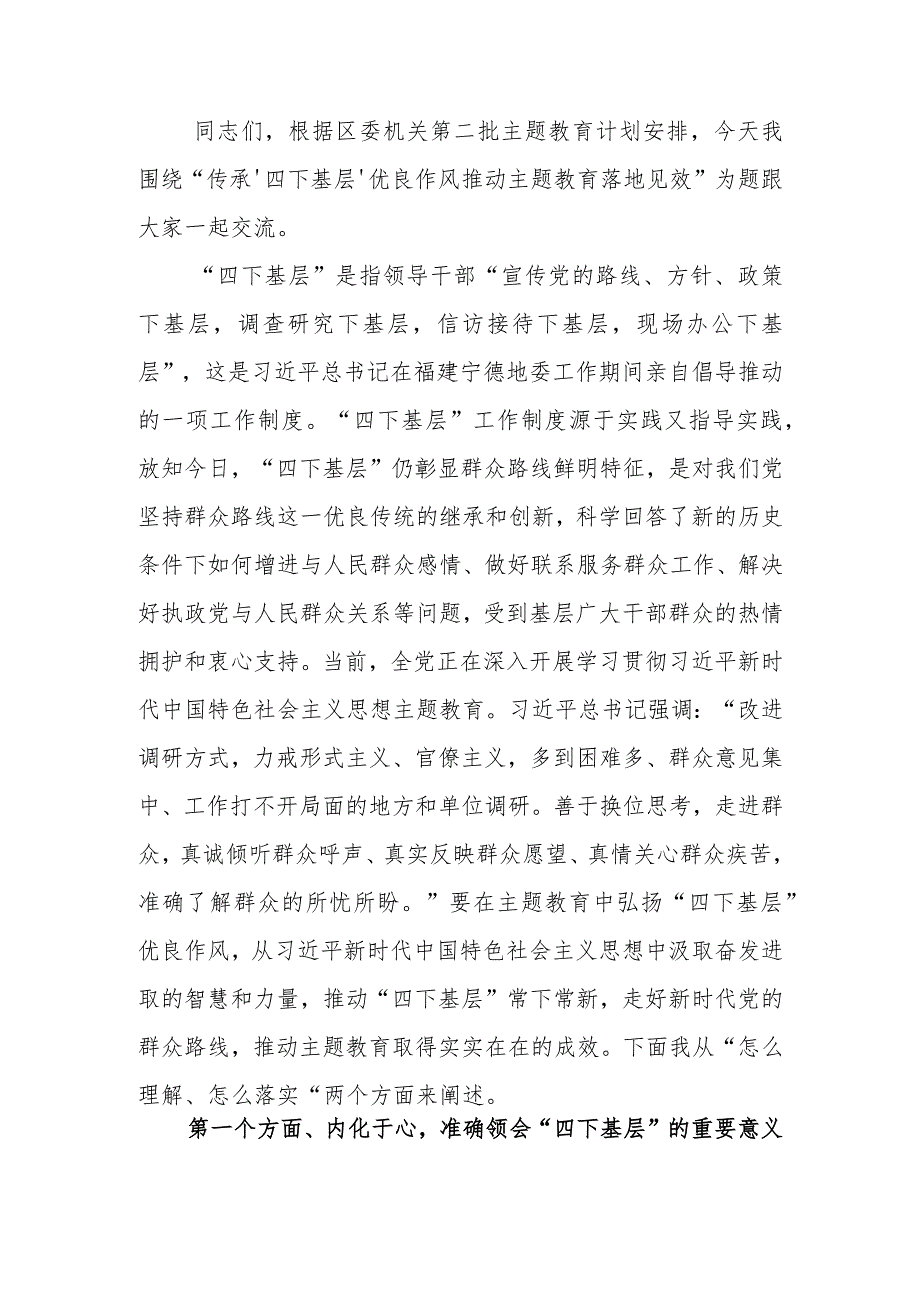 同志们，根据区委机关第二批主题教育计划安排，今天我
围绕“传承'四下基层'优良作风推动主题教育落地见效”为题跟
大家一起交流。
“四下基层”是指领导干部“宣传党的路线、方针、政策
下基层，调查研究下基层，信访接待下基层，现场办公下基
层”，这是习近平总书记在福建宁德地委工作期间亲自倡导推动
的一项工作制度。“四下基层”工作制度源于实践又指导实践，
放知今日，“四下基层”仍彰显群众路线鲜明特征，是对我们党
坚持群众路线这一优良传统的继承和创新，科学回答了新的历史
条件下如何增进与人民群众感情、做好联系服务群众工作、解决
好执政党与人民群众关系等问题，受到基层广大干部群众的热情
拥护和衷心支持。当前，全党正在深入开展学习贯彻习近平新时
代中国特色社会主义思想主题教育。习近平总书记强调：“改进
调研方式，力戒形式主义、官僚主义，多到困难多、群众意见集
中、工作打不开局面的地方和单位调研。善于换位思考，走进群
众，真诚倾听群众呼声、真实反映群众愿望、真情关心群众疾苦，
准确了解群众的所忧所盼。”要在主题教育中弘扬“四下基层”
优良作风，从习近平新时代中国特色社会主义思想中汲取奋发进
取的智慧和力量，推动“四下基层”常下常新，走好新时代党的
群众路线，推动主题教育取得实实在在的成效。下面我从“怎么
理解、怎么落实“两个方面来阐述。
第一个方面、内化于心，准确领会“四下基层”的重要意义